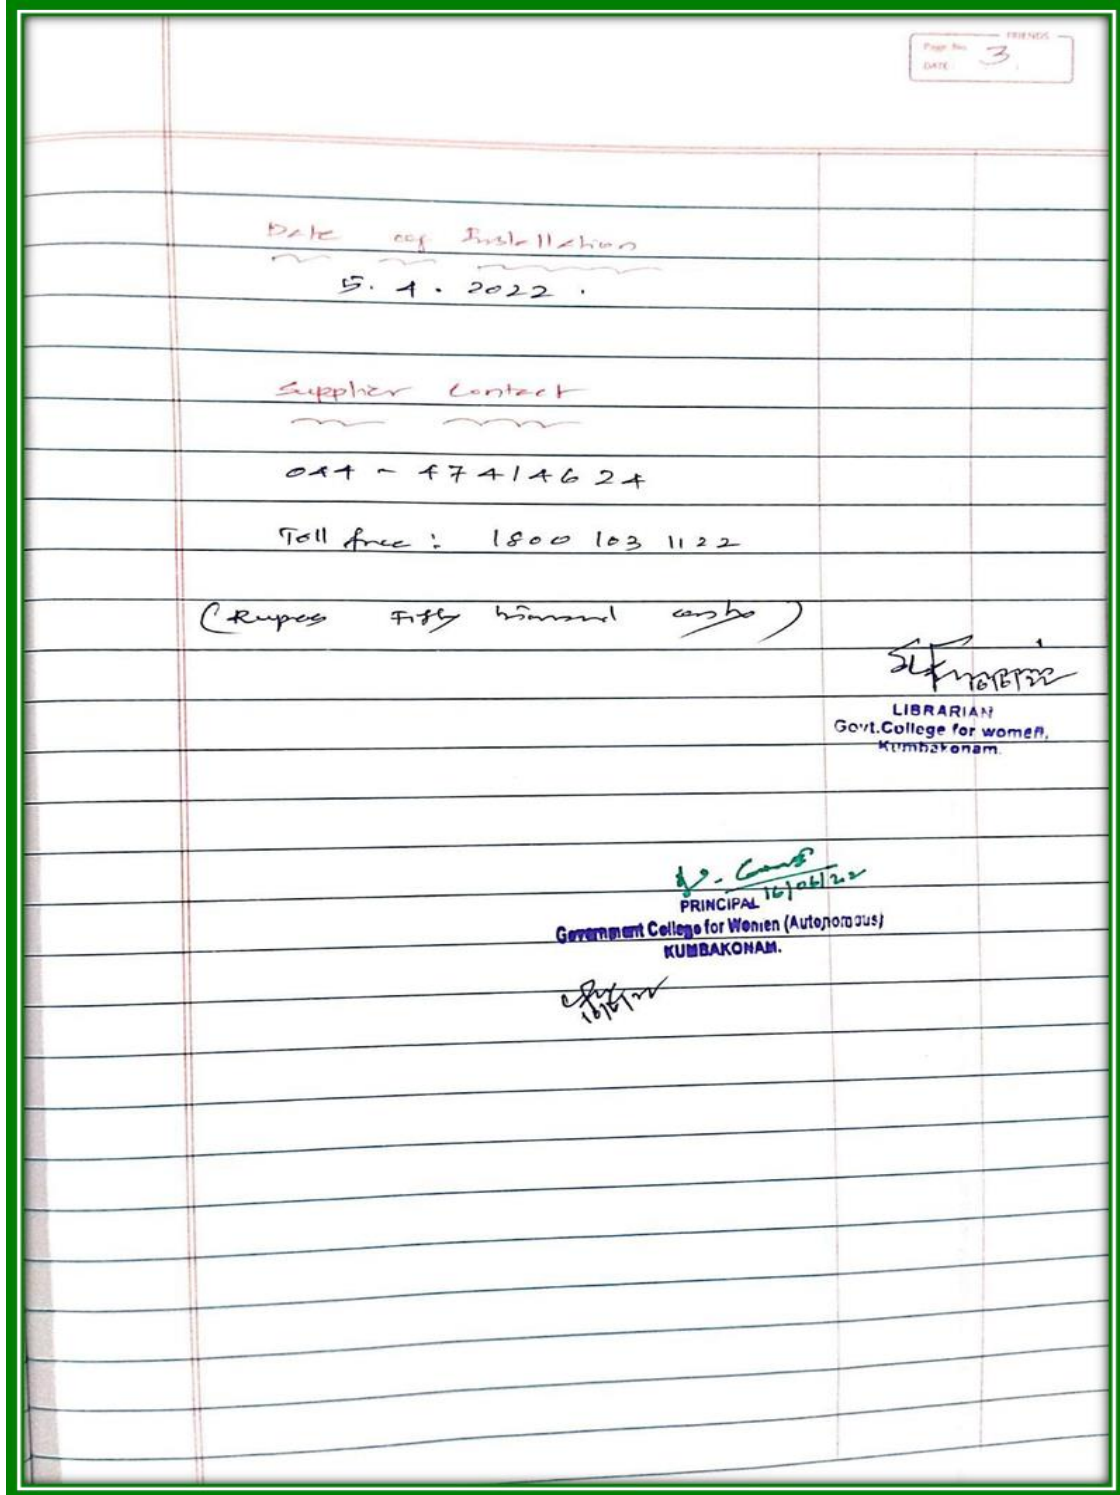 FRIENDS
Page No. 3
DATE:
Date of Installation
5.4.2022.
Supplier Contact
044 - 47414624
Toll free: 1800 103 1122
(Rupees Fifty thousand
16/6/22
LIBRARIAN
Govt.College for women,
Kumbakonam.
16/06/22
PRINCIPAL
Government College for Women (Autonomous)
KUMBAKONAM.